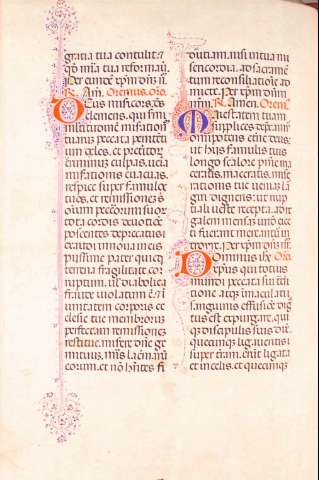 gratia tua contulit: 
qđ mīa tua reformauit.
Per eundē xp̄m dn̄m n̄r̄.
℟. Am̄. Oremus. oro.
Deus misericors, ds
clemens, qui scđm
multitudinē miserationū
tuarum peccata peniten
tium deles, et preteritorū
criminum culpas, uenia
remissionis euacuas,
respice super famulos
tuos, et remissionem si
omnium peccatorum suor
tota cordis
poscentes deprecatus
exaudi. Innoua in eis
piissime pater quicqd
terrena fragilitate cor
ruptum, uel diabolica
fraude uiolatum ē: 7 ī
unitatem corporis ec
clesie tue membrorum
perfectam remissionem
restitue. miserere dn̄e ge
mituum, mis̄ lacrimarū
eorum, et nō hn̄tes fi
dutiam, nisi in tua mi
sericordia, ad sacramē
tum reconciliationis ad
mitte. Per xp̄m dn̄m
nr̄m. ℟. Amen. Orem̄.
Maiestatem tuam
supplices deprecam̄
omnipotens eterne deus:
ut his famulis tuis
longo squalore penitentie
maceratis, miserationis
tue ueniam lar
giri digneris: ut nup
tiali ueste recepta, ad re
galem mensam unde ei
ecti fuerant mereantur in
troire. Per xp̄m dn̄m n̄r̄.
Dominus ihc̄ Oro.
xp̄us qui totius
mundi peccata sui tradi
tione atqȝ immaculati
sanguinis effusione dig
natus est expurgare, qui
qȝ discipulis suis dixit:
quecunqȝ ligaueritis
super terram, erunt ligata
et in celis, et quecunqȝ